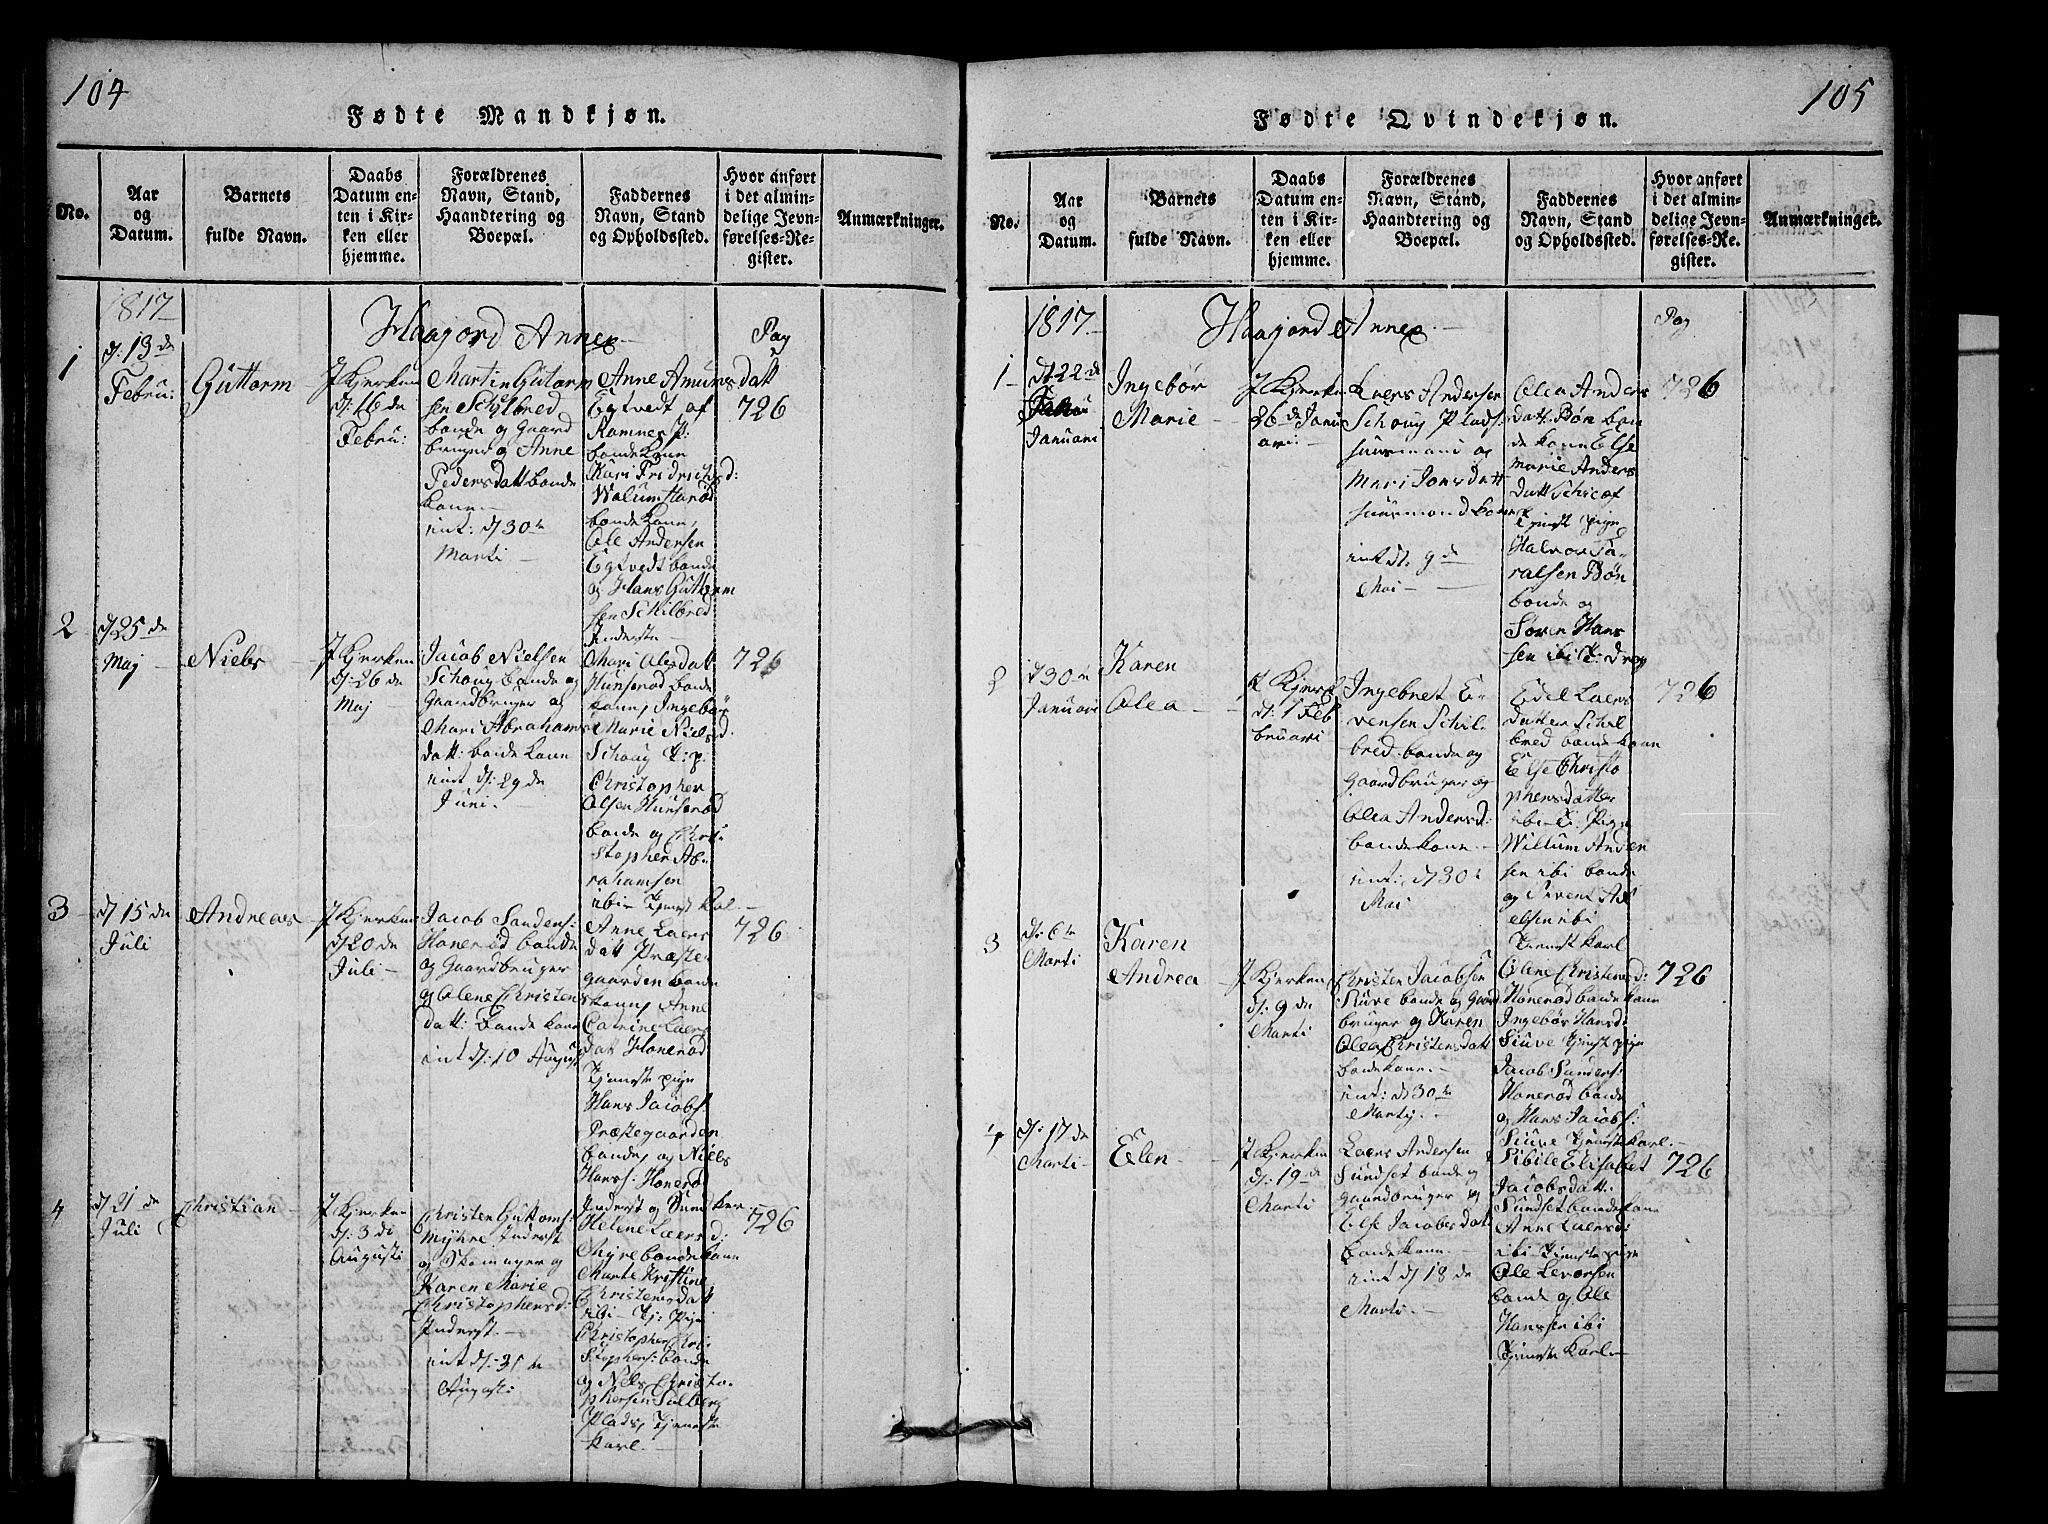 104
Fødte Mandkjøn.
No.
Aar
og
Datum.
Barnets
fulde Navn.
Daabs
Datum en-
ten i Kir-
ken eller
hjemme.
Forældrenes
Navn, Stand,
Haandtering og
Boepæl.
Faddernes
Navn, Stand
og Opholdssted.
Hvor anført
i det almin-
delige Jevn-
førelses-Re-
gister.
Anmærkninger.
1817
Haajord Annex
Pag
1
d: 13 de
Febru:
Guttorm
I Kjerken
d: 16 de
Febru:
Martin Gutorm
sen Schilbred
bonde og Gaard
bruger og Anne
Pedersdatt bonde
kone
int: d 30te
Marti
Anne Amunsdatt
Egtvedt af
Ramnes P:
bonde kone
Kari Fridrichsd:
Walum Harød
bonde kone,
Ole Andersen
Egtvedt bonde
og Hans Guttorm
sen Schilbred
Inderste
726
2
d 25 de
Maj
Niels
I Kjerken
d: 26 de
Maj
Jacob Nielsen
Schoug bonde og
Gaardbruger og
Mari Abrahams
datt: bonde kone
int d: 29 de
Juni.
Mari Olesdat
Hunserød bonde
kone, Ingebør
Marie Nielsd.
Schoug T: p:
Christopher
Olsen Hunserød
bonde og Chri-
stopher Ab-
rahamsen
ibi Tjenst Kal.
726
3
d 15 de
Juli
Andreas
I Kjerken
d 20 de
Juli
Jacob Sanders:
Honerød bonde
og Gaardbruger
og Olene Christens
datt: bonde kone
int d: 10 August
Anne Laers
datt Præste-
gaarden bonde
kone, Anne
Catrine Laers
datt Honerød
Tjenste pige
Hans Jacobs:
Præstegaarden
bonde, og Niels
Hanss: Honerød
Inderst og Snedker
726
4
d 21 de
Juli
Christian
I Kjerken
d: 3 di
Augusti
Christen Guttoms:
Myhre Inderst
og Skomager og
Karen Marie
Christophersd:
Inderst.
int d: 31 te
Augusti
Helene Laersd:
Myre bonde kone
Marte Kristine
Christensdatt
ibi Tj: Pige
Christopher Chri
stophers: bonde
og Niels Christo-
phersen Solberg
Plads, Tjenste
karl.
726
105
Fødte Qvindekjøn.
No.
Aar
og
Datum.
Barnets
fulde Navn.
Daabs
Datum en-
ten i Kir-
ken eller
hjemme.
Forældrenes
Navn, Stand,
Haandtering og
Boepæl.
Faddernes
Navn, Stand
og Opholdssted.
Hvor anført
i det almin-
delige Jevn-
førelses-Re-
gister.
Anmærkninger.
1817
Haajord Annex
Pag
1
d 22 de
Januari
Ingebør
Marie
I Kjerken
26 de Janu
ari
Laers Andersen
Schoug Plads
huusmand og
Mari Jonsdatt
huusmand kone
int d. 9 de
Mai
Olea Anders
datt: Bøn bon
de kone Else
Marie Anders
datt
Tjenst pige
Halvor Ta-
ralsen Bøn
bonde og
Søren Hans
sen ibi T: dreg
726
2
d 30 te
Januari
Karen
Olea
I Kjerk
d: 1 Feb
bruari
Ingebret E-
vensen Schil
bred: bonde og
Gaardbruger og
Olea Andersd:
bonde kone.
int: d 30 te
Mai
Edel Laers
datter Schil
bred bonde kone
Else Christo
phersdatter
ibi T: Pige
Willum Anders
sen ibi bonde
og Sivert
elsen ibi
Tjenst karl
726
3
d: 6 te
Marti
Karen
Andrea
I Kjerken
d: 9 de
Marti
Christen Jacobsen
Siuve bonde og Gaard
bruger og Karen
Olea Christensdatt
bonde kone.
int: d 30 te
Martij.
Olene Christensd:
Honerød bonde kone
Ingebør Hansd:
Siuve Tjenst pige
Jacob Sanders:
Honerød bonde
og Hans Jacobs:
Siuve Tjenste karl.
726
4
d: 17 de
Marti
Elen
I Kjerken
d: 19 de
Marti
Laers Andersen
Sundset bonde og
gaardbruger og
Else Jacobsdatt
bonde kone.
int d 18 de
Marti.
Sibile Elisabet
Jacobsdatt:
Sundset bonde kone
Anne Laersd:
ibi Tjenste pige
Ole Levorsen
bonde og Ole
Hanssen ibi
Tjenste karl
726